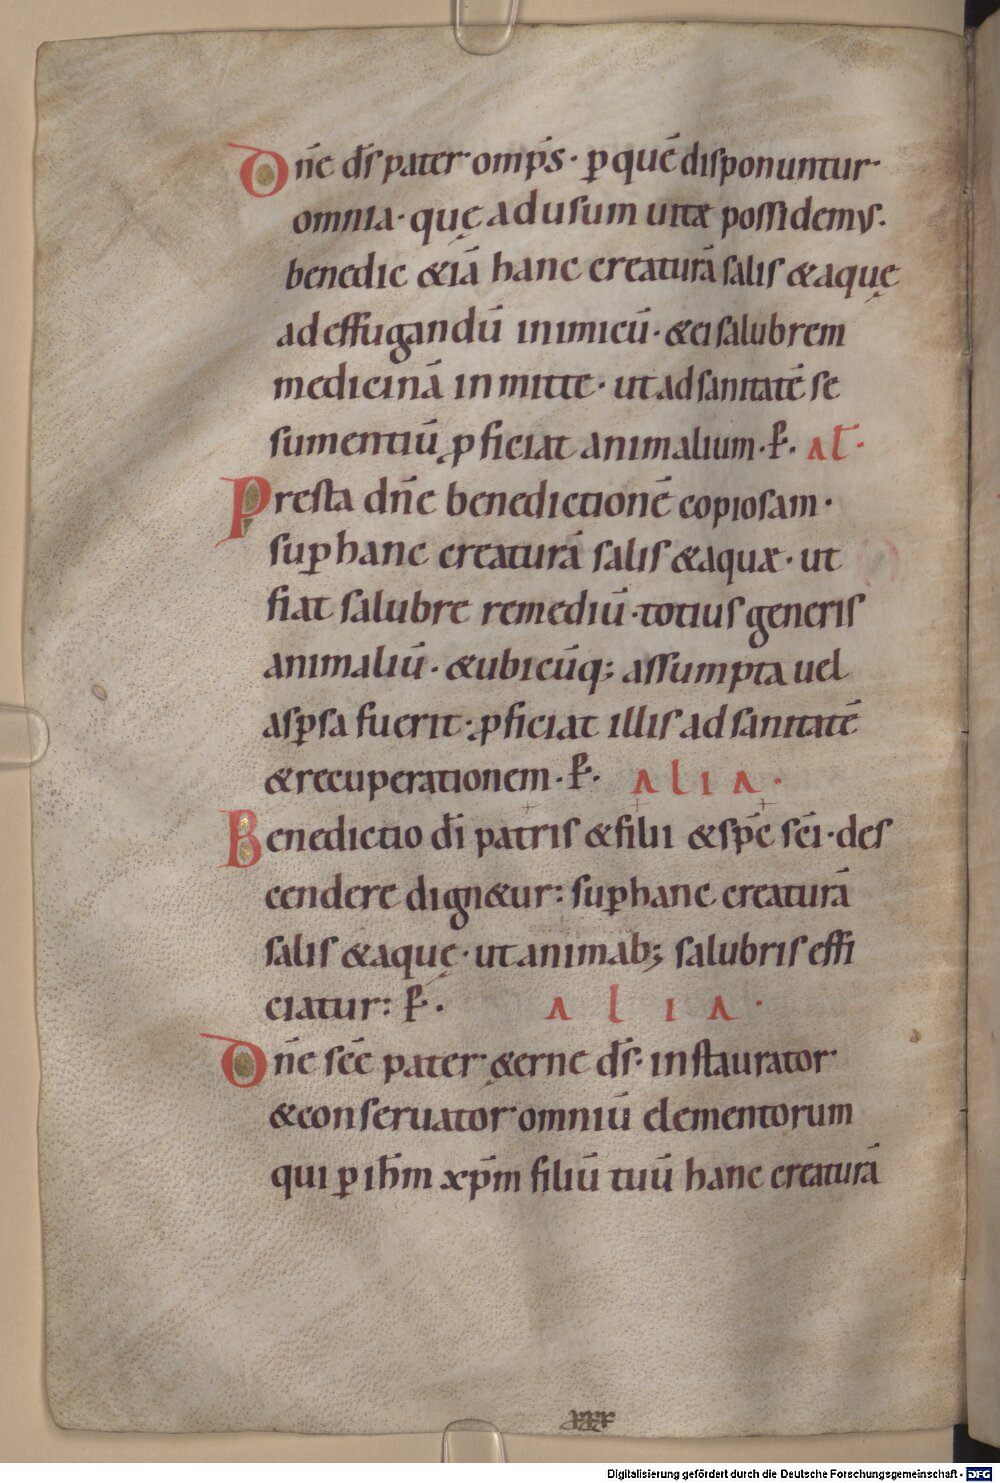 Dn̄e ds̄ pater omp̄s · ꝑ quē disponuntur ·
omnia · quę ad usum uitæ possidemus ·
benedic &iā hanc creaturā salis & aquę
ad effugandū inimicū · & ei salubrem
medicinā inmitte · ut ad sanitatē se
sumentiū ꝓficiat animalium · P̄ · AL̄ ·
Presta dn̄e benedictionē copiosam ·
suꝑ hanc creaturā salis & aquæ · ut
fiat salubre remediū · totius generis
animaliū · & ubicūq; assumpta uel
asꝑsa fuerit · ꝓficiat illis ad sanitatē
& recuperationem · P̄ · ALIA ·
Benedictio dī patris & filii & sp̄c sc̄i · des
cendere dign&ur : suꝑ hanc creaturā
salis & aquę · ut animab; salubris effi
ciatur : P̄ · ALIA ·
Dn̄e sc̄e pater &erne ds̄ · instaurator
& conseruator omniū elementorum
qui ꝑ ih̄m xp̄m filiū tuū hanc creaturā
Digitalisierung gefördert durch die Deutsche Forschungsgemeinschaft - DFG